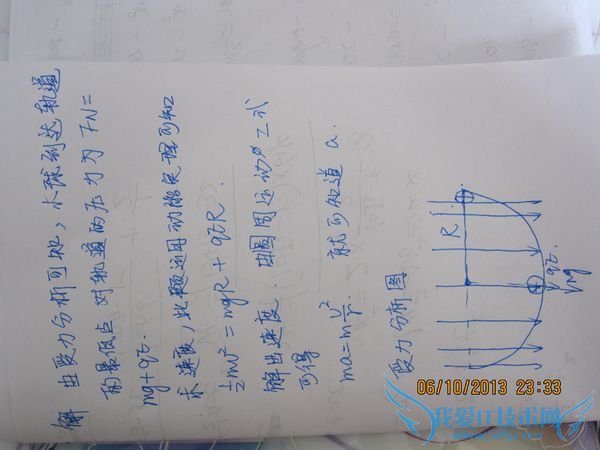 解 由受力分析可知,小球到达轨道
的最低点 对轨道的压力为 FN=
mg+qε.
求速度,此题运用动能定理可知
½mv²=mgR+qεR.
解出速度. 由圆周运动 公式
可得
ma=m v²/r. 就可知道 a.
受力分析图
R
qε
mg
06/10/2013 23:33
我爱IT技术网